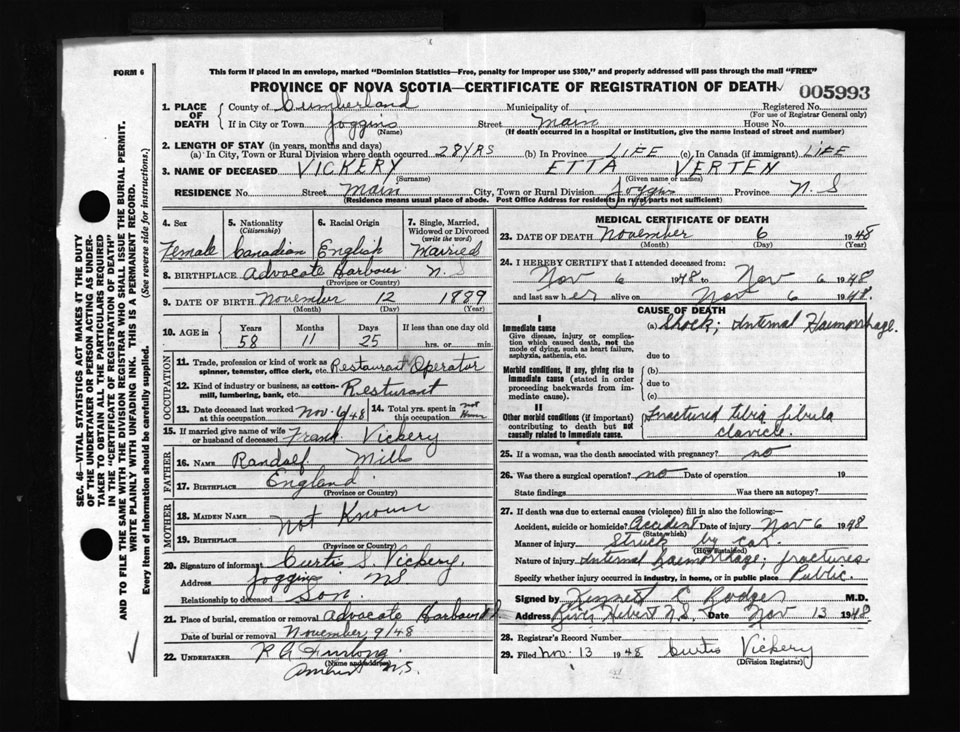 FORM 6
This form if placed in an envelope, marked "Dominion Statistics—Free, penalty for improper use $300," and properly addressed will pass through the mail "FREE"
PROVINCE OF NOVA SCOTIA—CERTIFICATE OF REGISTRATION OF DEATH 005993
1. PLACE OF DEATH
County of Cumberland Municipality of Registered No.
(For use of Registrar General only)
If in City or Town Joggins Street Main House No.
(Name) (If death occurred in a hospital or institution, give the name instead of street and number)
2. LENGTH OF STAY (in years, months and days)
(a) In City, Town or Rural Division where death occurred 28 YRS (b) In Province LIFE (c) In Canada (if immigrant) LIFE
3. NAME OF DECEASED VICKERY ETTA VERTEN
(Surname) (Given name or names)
RESIDENCE No. Street Main City, Town or Rural Division Joggins Province N.S
(Residence means usual place of abode. Post Office Address for residents in rural parts not sufficient)
4. Sex Female
5. Nationality (Citizenship) Canadian
6. Racial Origin English
7. Single, Married, Widowed or Divorced (write the word) Married
8. BIRTHPLACE Advocate Harbour N.S
(Province or Country)
9. DATE OF BIRTH November 12 1889
(Month) (Day) (Year)
10. AGE in Years 58 Months 11 Days 25 If less than one day old hrs. or min.
OCCUPATION
11. Trade, profession or kind of work as spinner, teamster, office clerk, etc. Restaurant Operator
12. Kind of industry or business, as cotton-mill, lumbering, bank, etc. Resturant
13. Date deceased last worked at this occupation Nov 6/48
14. Total yrs. spent in this occupation not
15. If married give name of wife or husband of deceased Frank Vickery
FATHER
16. NAME Randolf Mills
17. BIRTHPLACE England
(Province or Country)
MOTHER
18. MAIDEN NAME Not Known
19. BIRTHPLACE
(Province or Country)
20. Signature of informant Curtis S. Vickery,
Address Joggins NS
Relationship to deceased Son
21. Place of burial, cremation or removal Advocate Harbour N.S.
Date of burial or removal November 9/48
22. UNDERTAKER R A Furlong
(Name and address)
Amherst N.S.
MEDICAL CERTIFICATE OF DEATH
23. DATE OF DEATH November 6 1948
(Month) (Day) (Year)
24. I HEREBY CERTIFY that I attended deceased from:
Nov 6 1948 to Nov 6 1948
and last saw her alive on Nov 6 1948.
CAUSE OF DEATH
I
Immediate cause
Give disease, injury or complication which caused death, not the mode of dying, such as heart failure, asphyxia, asthenia, etc.
(a) Shock; Internal Haemorrhage.
due to
Morbid conditions, if any, giving rise to immediate cause (stated in order proceeding backwards from immediate cause).
(b)
due to
(c)
II
Other morbid conditions (if important) contributing to death but not causally related to immediate cause.
Fractured tibia fibula
clavicle.
25. If a woman, was the death associated with pregnancy? no
26. Was there a surgical operation? no Date of operation 19
State findings Was there an autopsy?
27. If death was due to external causes (violence) fill in also the following:—
Accident, suicide or homicide? Accident Date of injury Nov 6 1948
(State which)
Manner of injury Struck by car.
(How sustained)
Nature of injury Internal haemorrhage; fractures
Specify whether injury occurred in industry, in home, or in public place Public.
Signed by Kennett E Rodger M.D.
Address River Hebert N.S. Date Nov 13 1948
28. Registrar's Record Number
29. Filed Nov. 13 1948 Curtis Vickery
(Division Registrar)
SEC. 46—VITAL STATISTICS ACT MAKES IT THE DUTY
OF THE UNDERTAKER OR PERSON ACTING AS UNDER-
TAKER TO OBTAIN ALL THE PARTICULARS REQUIRED
IN THE "CERTIFICATE OF REGISTRATION OF DEATH"
AND TO FILE THE SAME WITH THE DIVISION REGISTRAR WHO SHALL ISSUE THE BURIAL PERMIT.
WRITE PLAINLY WITH UNFADING INK. THIS IS A PERMANENT RECORD.
Every item of information should be carefully supplied. (See reverse side for instructions.)